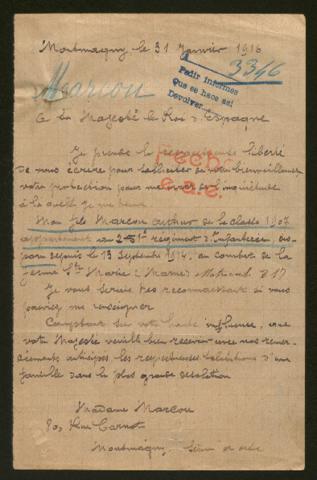 Montmagny le 31 Janvier 1916
3346
Pedir Informes
Que se hace así
Devolver
Marcou
A Sa Majesté le Roi d'Espagne
Je prends la respectueuse liberté
de vous écrire pour solliciter de votre bienveillance
votre protection pour me tirer de l'inquiétude
à laquelle je me
fecho
Mon fils Marcou Arthur de la classe 1907
appartenant au régiment d'Infanterie dis-
paru depuis le 13 Septembre 1914, au combat de la
ferme Ste Marie (Marne) Matricul 817
Je vous serais très reconnaissant si vous
pouviez me renseigner
Comptant sur votre haute influence, que
votre Majesté veuille bien recevoir avec nos remer-
ciements anticipés les respectueuses salutations d'une
famille dans la plus grande désolation
Madame Marcou
80, Rue Carnot
Montmagny Seine et Oise